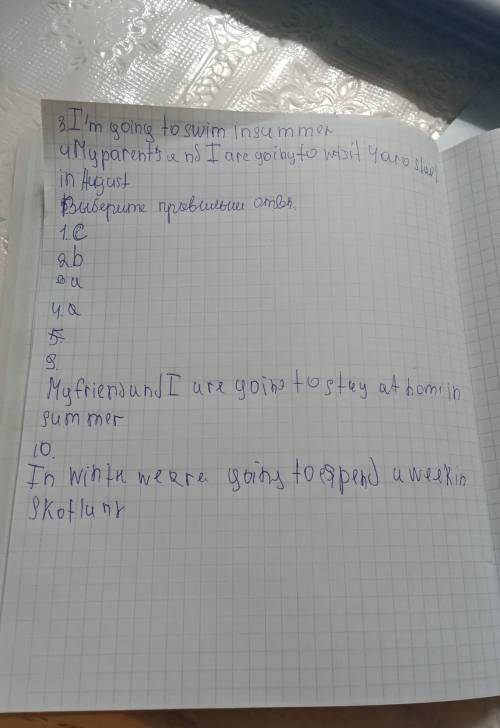 3 I'm going to swim In summer
4 My parents and I are going to wisit Yaroslavl
in August
Выберите правильный ответ.
1. C
2 b
3 a
4. a
5.
9.
My friend and I are going to stay at home in
summer
10.
In winter we are going to spend a week in
Skotland